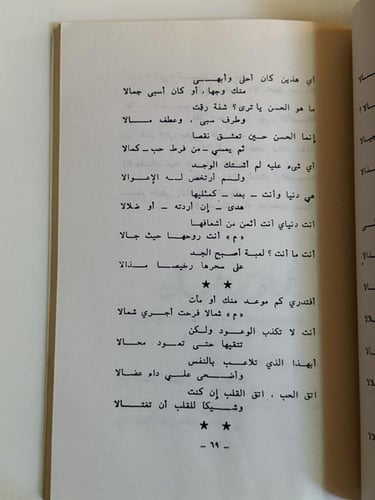 أي هذين كان أحلى وأبهـــى
منك وجها، أو كان أسبى جمالا
ما هو الحسن يا ترى؟ شفة رقت
وطرف سبى ، وعطف مـــالا
إنما الحسن حين تعشـق نقصا
ثم يمسي ــ من فرط حب ــ كمالا
أي شيء عليه لم أشتك الوجد
ولـــم أرتخص لـــه الإعـوالا
هي دنيا وأنت ــ بعد ــ كمثليها
هدى ــ إن أردته ــ أو ضلالا
أنت دنياي أنت أثمن من أشعافها
« م » أنت روحها حيث جالا
أنت ما أنت ؟ لعبة أصبح الجد
على سحرها رخيصا مــذالا
★ ★
أفتدري كم موعد منك أو مأت
« م » شمالا فرحت أجري شمالا
أنت لا تكذب الوعود ولكن
تتقيها حتى تعـود محـالا
أبهـذا الذي تلاعـب بالنفس
وأضـحى علـي داء عضـالا
اتق الحب ، اتق القلب إن كنت
وشــيكا للقلب أن تغتــالا
★ ★
ــ ٦٩ ــ